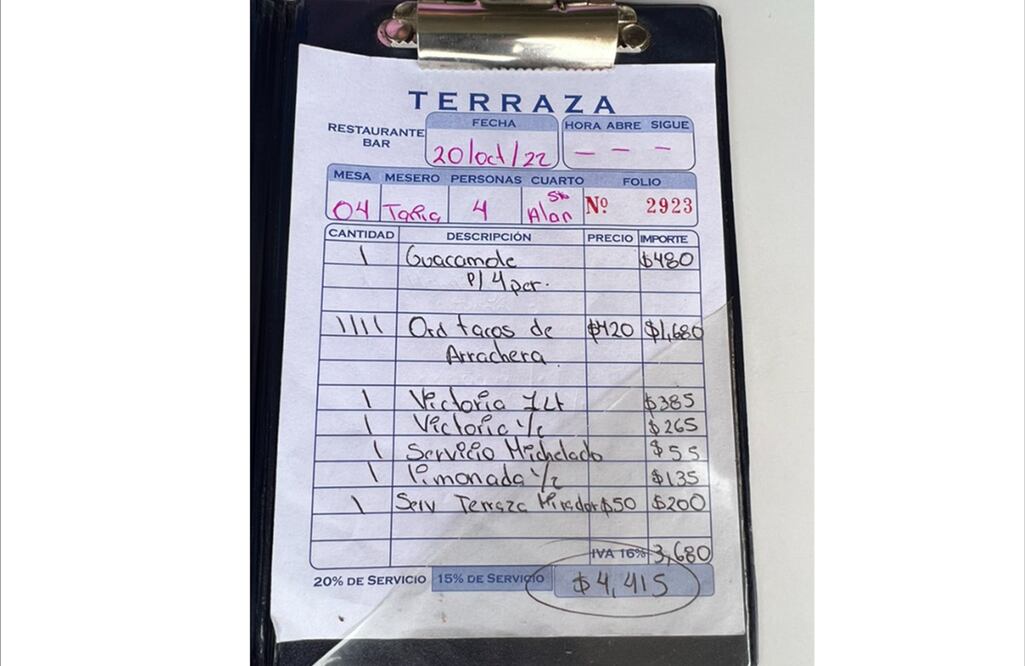 TERRAZA
RESTAURANTE BAR
FECHA
20/oct/22
HORA ABRE SIGUE
— — —
MESA MESERO PERSONAS CUARTO FOLIO
04 4 Alan Nº 2923
CANTIDAD DESCRIPCIÓN PRECIO IMPORTE
\ Guacamole $480
P/ 4 per.
\\\\ Ord tacos de $420 $1,680
Arrachera
\ Victoria 1Lt $385
\ Victoria $265
\ Servicio Michelado $55
\ limonada 1/2 $135
\ Serv Terraza Mirador $50 $200
IVA 16% 3,680
20% DE SERVICIO 15% DE SERVICIO $4,415